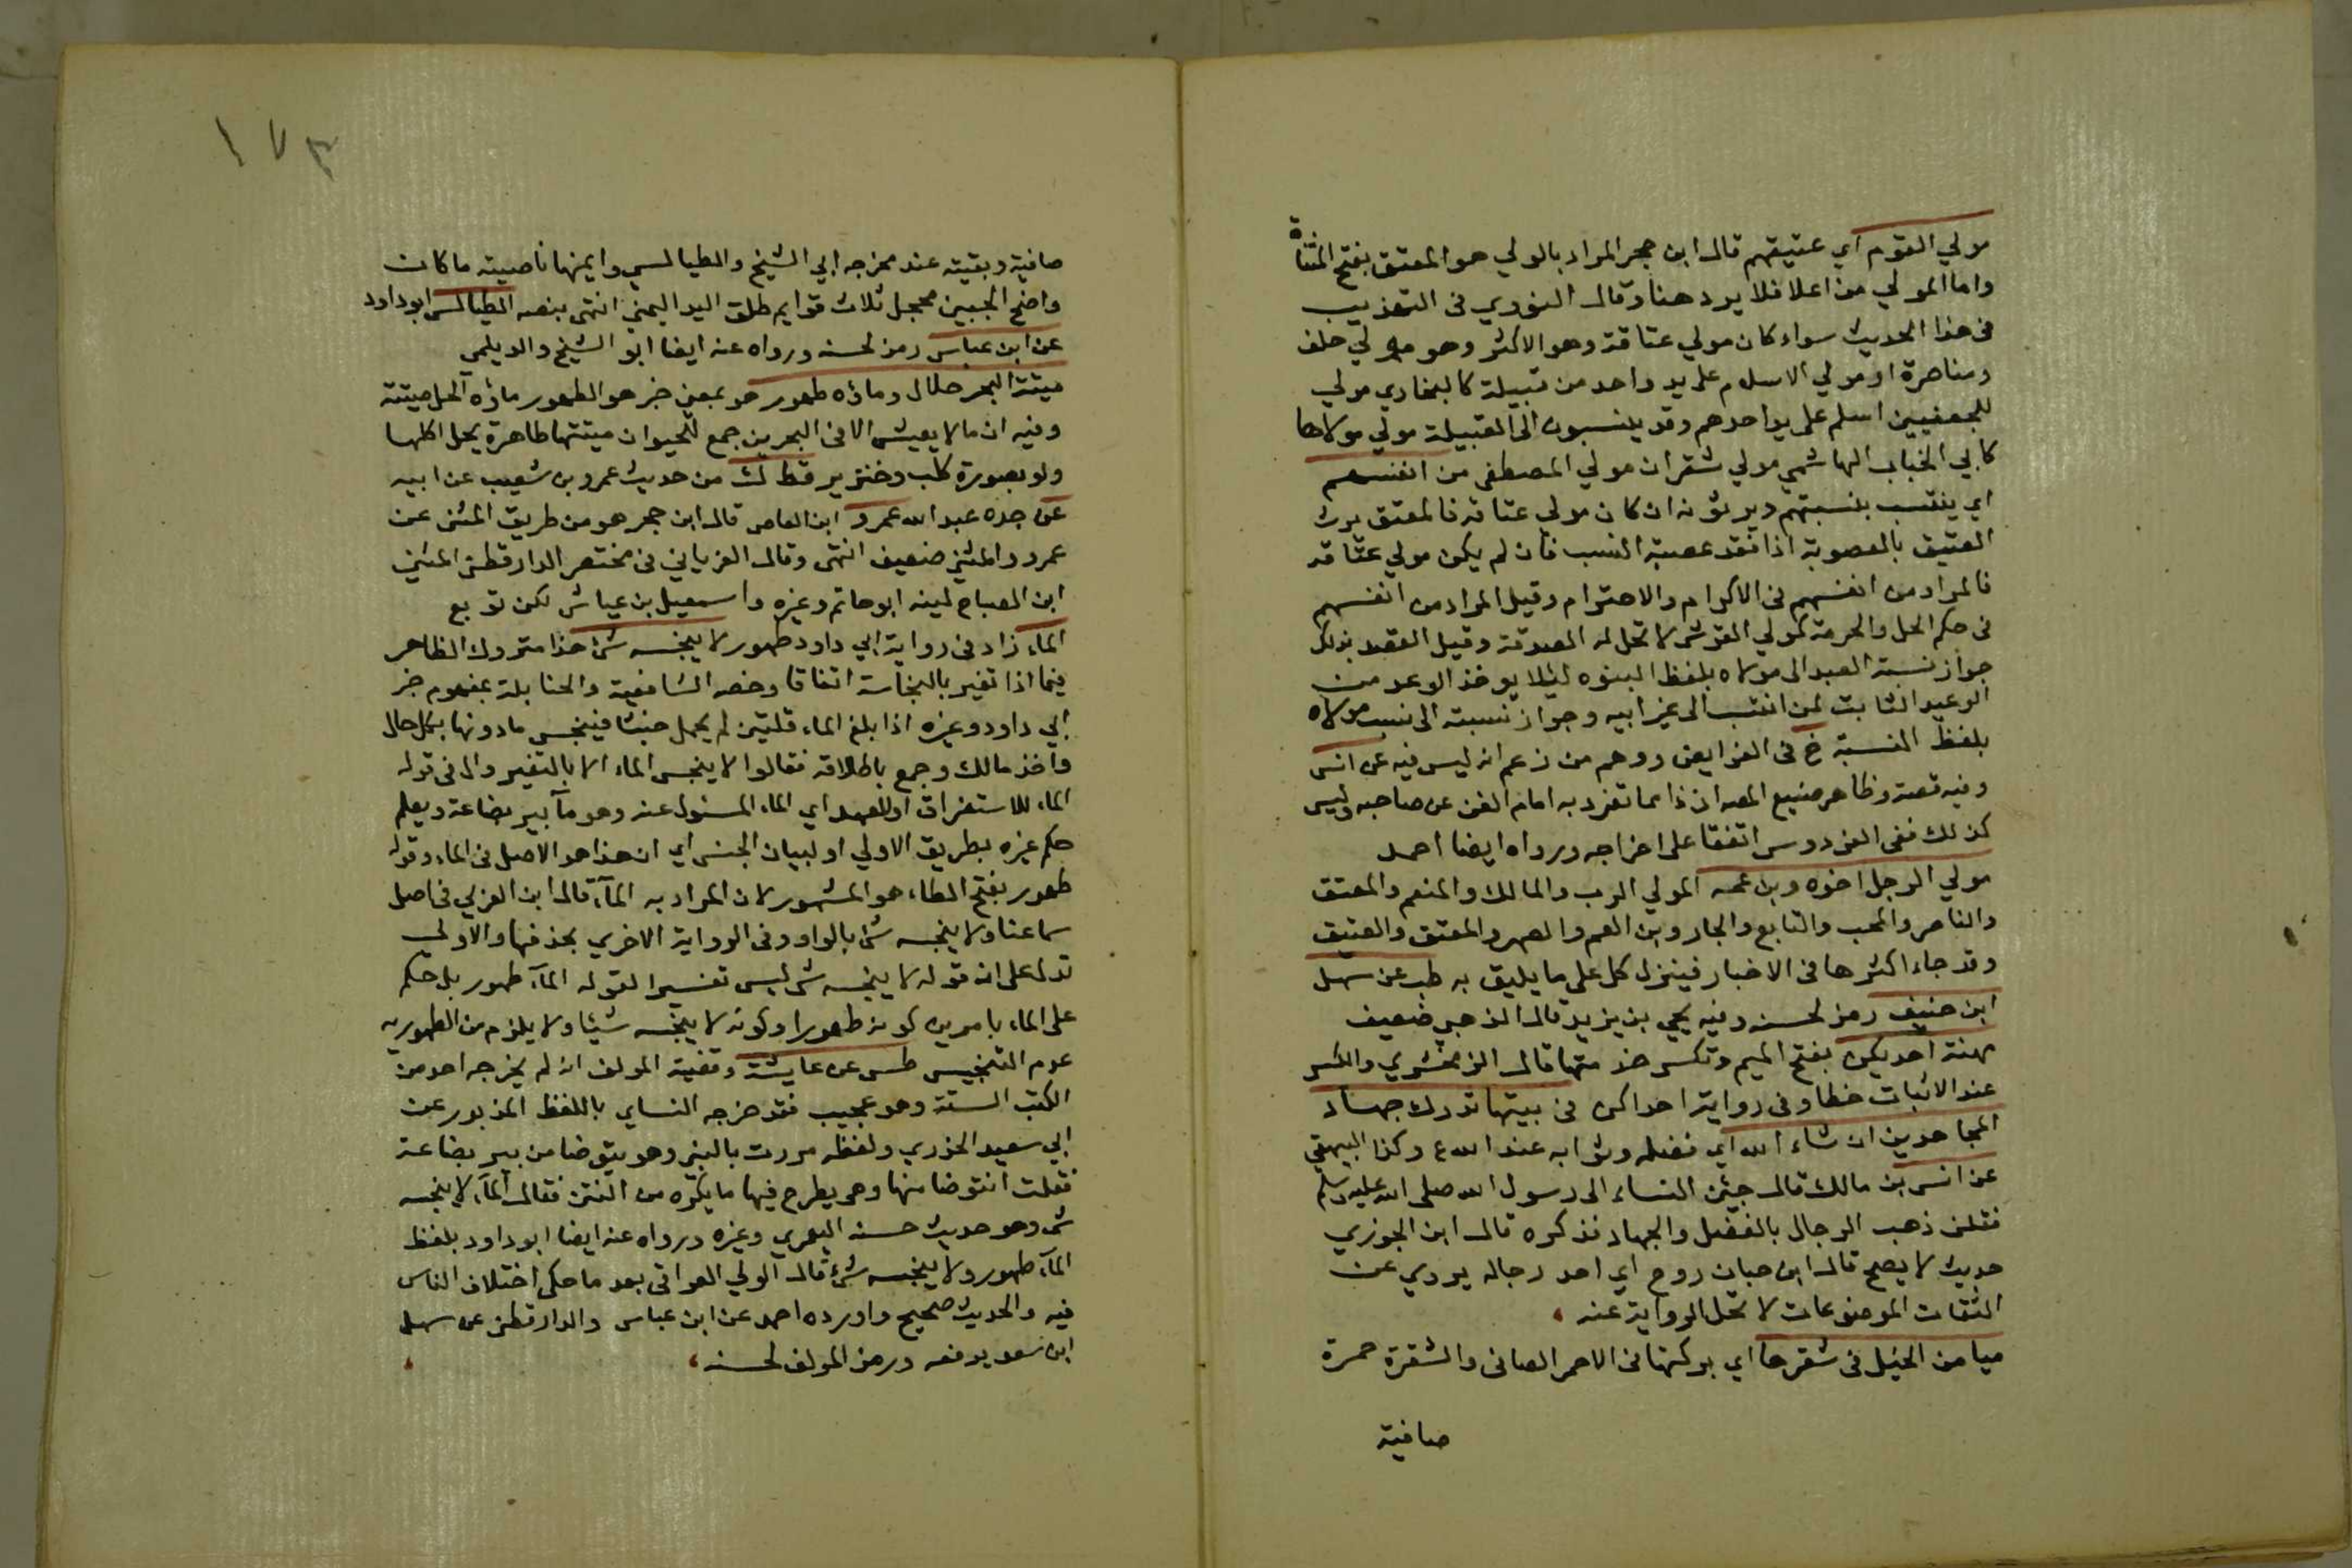 مولي القوم اي عتيقهم قال ابن حجر المراد بالولي هو المعتق بفتح المثناة
واما المولي من اعلا فلا يرد هنا وقال النووي في التهذيب
في هذا الحديث سواء كان مولي عتاقة وهو الاكثر وهو مولي حلف
ومناصرة او مولي الاسلام على يد واحد من قبيلة كالبخاري مولي
للجعفيين اسلم على يد احدهم وقد ينسبون الى القبيلة مولي مولاها
كابي الحباب الهاشمي مولي شقران مولي المصطفى من انفسهم
اي ينتسب بنسبتهم ويرثونه ان كان مولي عتاقة فالمعتق يرث
العتيق بالعصوبة اذا فقد عصبة النسب فان لم يكن مولي عتاقة
فالمراد من انفسهم في الاكرام والاحترام وقيل المراد من انفسهم
في حكم الحل والحرمة كمولي القرشى لا تحل له الصدقة وقيل القصد بذلك
جواز نسبة العبد الى مولاه بلفظ البنوه ليلا يوخذ الوعد من
الوعيد الثابت لمن انتسب الى غير ابيه وجواز نسبته الى نسب مولاه
بلفظ النسبة خ في الفرايض ووهم من زعم انه ليس فيه عن انس
وفيه قصة وظاهر صنيع المصه ان ذا مما تفرد به امام الفن عن صاحبه وليس
كذلك ففى الفردوس اتفقا على اخراجه ورواه ايضا احمد
مولي الرجل اخوه وبن عمه المولي الرب والمالك والمنعم والمعتق
والناصر والمحب والتابع والجار وبن العم والصهر والمعتق والعتيق
وقد جاء اكثرها في الاخبار فينزل كل على ما يليق به طب عن سهل
ابن حنيف رمز لحسنه وفيه يحيي بن يزيد قال الذهبي ضعيف
مهنة احديكن بفتح الميم وتكسر خدمتها قال الزمخشري والكسر
عند الاثبات خطا وفي رواية احداكن في بيتها تدرك جهاد
المجاهدين ان شاء الله اي فضله وثوابه عند الله ع وكذا البيهقي
عن انس بن مالك قال جيئن النساء الى رسول الله صلى الله عليه وسلم
فقلن ذهب الرجال بالفضل والجهاد فذكره قال ابن الجوزي
حديث لا يصح قال ابن حبان روح اي احد رجاله يروي عن
الثقات الموضوعات لا تحل الرواية عنه
ميامن الخيل في شقرها اي بركتها في الاحمر الصافى والشقرة حمرة
صافية
١٧٣
صافية وبقيته عند مخرجه ابي الشيخ والطيالسي وايمنها ناصيته ما كان
واضح الجبين محجل ثلاث قوايم طلق اليد اليمني انتهى بنصه الطيالسي ابو داود
عن ابن عباس رمز لحسنه ورواه عنه ايضا ابو الشيخ والديلمي
ميتة البحر حلال وماؤه طهور هو بمعني خبر هو الطهور ماؤه الحل ميتته
وفيه ان ما لا يعيش الا في البحر ين جمع للحيوان ميتتها طاهرة يحل اكلها
ولو بصورة كلب وخنزير قط ك من حديث عمرو بن شعيب عن ابيه
عن جده عبد الله عمرو ابن العاص قال ابن حجر هو من طريق المثنى عن
عمرو والمثني ضعيف انتهى وقال الغرياني في مختصر الدارقطني المثني
ابن الصباح لينه ابو حاتم وغيره واسمعيل بن عياش لكن توبع
الماء زاد في رواية ابي داود طهور لا ينجسه شئ هذا متروك الظاهر
فيما اذا تغير بالنجاسة اتفاقا وخصه الشافعية والحنابلة بمفهوم خبر
ابي داود وغيره اذا بلغ الماء قلتين لم يحمل خبثا فينجس ما دونها بكل حال
واخذ مالك وجمع باطلاقه فقالوا لا ينجس الماء الا بالتغير وال في قوله
الماء للاستغراق او للعهد اي الماء المسئول عنه وهو مآ بير بضاعة ويعلم
حكم غيره بطريق الاولي او لبيان الجنس اي ان هذا هو الاصل في الماء وقوله
طهور بفتح الطاء هو المشهور لان المراد به المآء قال ابن العربي في اصل
سماعنا ولا ينجسه شئ بالواو وفي الرواية الاخري بحذفها والاولي
تدل على ان قوله لا ينجسه شى ليس تفسيرا لقوله المآء طهور بل حكم
على الماء بامرين كونه طهورا وكونه لا ينجسه شيئا ولا يلزم من الطهوريه
عدم التنجيس طس عن عايشة وقضية المولف انه لم يخرجه احد من
الكتب الستة وهو عجيب فقد خرجه النساي باللفظ المذبور عن
ابي سعيد الخدري ولفظه مررت بالنبي وهو يتوضا من بير بضاعة
فقلت انتوضا منها وهى يطرح فيها ما يكره من النتن فقال المآء لا ينجسه
شى وهو حديث حسنه اليعمري وغيره ورواه عنه ايضا ابو داود بلفظ
المآء طهور ولا ينجسه شئ قال الولي العراقى بعد ما حكى اختلاف الناس
فيه والحديث صحيح واورده احمد عن ابن عباس والدارقطني عن سهل
ابن سعد يرفعه ورمز المولف لحسنه